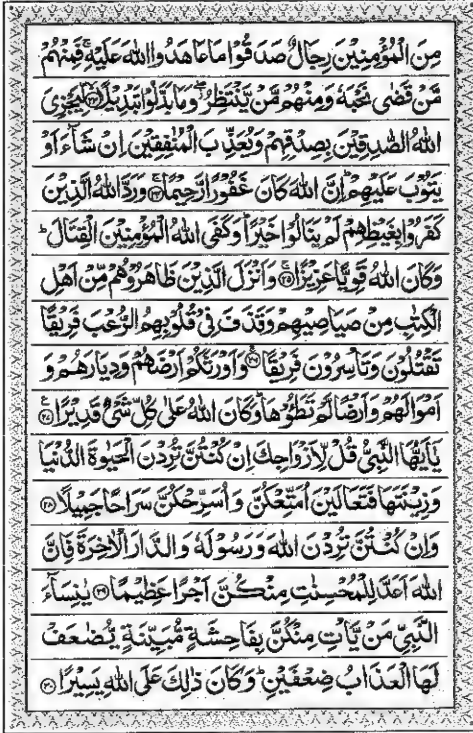 مِنَ الْمُؤْمِنِيْنَ رِجَالٌ صَدَقُوْا مَا عَاهَدُوا اللهَ عَلَيْهِ ۚ فَمِنْهُمْ
مَّنْ قَضٰى نَحْبَهٗ وَمِنْهُمْ مَّنْ يَّنْتَظِرُ ۖ وَمَا بَدَّلُوْا تَبْدِيْلًا ۙ﴿۲۳﴾ لِّيَجْزِىَ
اللهُ الصّٰدِقِيْنَ بِصِدْقِهِمْ وَيُعَذِّبَ الْمُنٰفِقِيْنَ اِنْ شَآءَ اَوْ
يَتُوْبَ عَلَيْهِمْ ؕ اِنَّ اللهَ كَانَ غَفُوْرًا رَّحِيْمًا ۚ﴿۲۴﴾ وَرَدَّ اللهُ الَّذِيْنَ
كَفَرُوْا بِغَيْظِهِمْ لَمْ يَنَالُوْا خَيْرًا ؕ وَكَفَى اللهُ الْمُؤْمِنِيْنَ الْقِتَالَ ؕ
وَكَانَ اللهُ قَوِيًّا عَزِيْزًا ۚ﴿۲۵﴾ وَاَنْزَلَ الَّذِيْنَ ظَاهَرُوْهُمْ مِّنْ اَهْلِ
الْكِتٰبِ مِنْ صَيَاصِيْهِمْ وَقَذَفَ فِىْ قُلُوْبِهِمُ الرُّعْبَ فَرِيْقًا
تَقْتُلُوْنَ وَتَاْسِرُوْنَ فَرِيْقًا ۚ﴿۲۶﴾ وَاَوْرَثَكُمْ اَرْضَهُمْ وَدِيَارَهُمْ وَ
اَمْوَالَهُمْ وَاَرْضًا لَّمْ تَطَـُٔوْهَا ؕ وَكَانَ اللهُ عَلٰى كُلِّ شَىْءٍ قَدِيْرًا ۚ﴿۲۷﴾
يٰۤاَيُّهَا النَّبِىُّ قُلْ لِّاَزْوَاجِكَ اِنْ كُنْتُنَّ تُرِدْنَ الْحَيٰوةَ الدُّنْيَا
وَزِيْنَتَهَا فَتَعَالَيْنَ اُمَتِّعْكُنَّ وَاُسَرِّحْكُنَّ سَرَاحًا جَمِيْلًا ﴿۲۸﴾
وَاِنْ كُنْتُنَّ تُرِدْنَ اللهَ وَرَسُوْلَهٗ وَالدَّارَ الْاٰخِرَةَ فَاِنَّ
اللهَ اَعَدَّ لِلْمُحْسِنٰتِ مِنْكُنَّ اَجْرًا عَظِيْمًا ﴿۲۹﴾ يٰنِسَآءَ
النَّبِىِّ مَنْ يَّاْتِ مِنْكُنَّ بِفَاحِشَةٍ مُّبَيِّنَةٍ يُّضٰعَفْ
لَهَا الْعَذَابُ ضِعْفَيْنِ ؕ وَكَانَ ذٰلِكَ عَلَى اللهِ يَسِيْرًا ﴿۳۰﴾